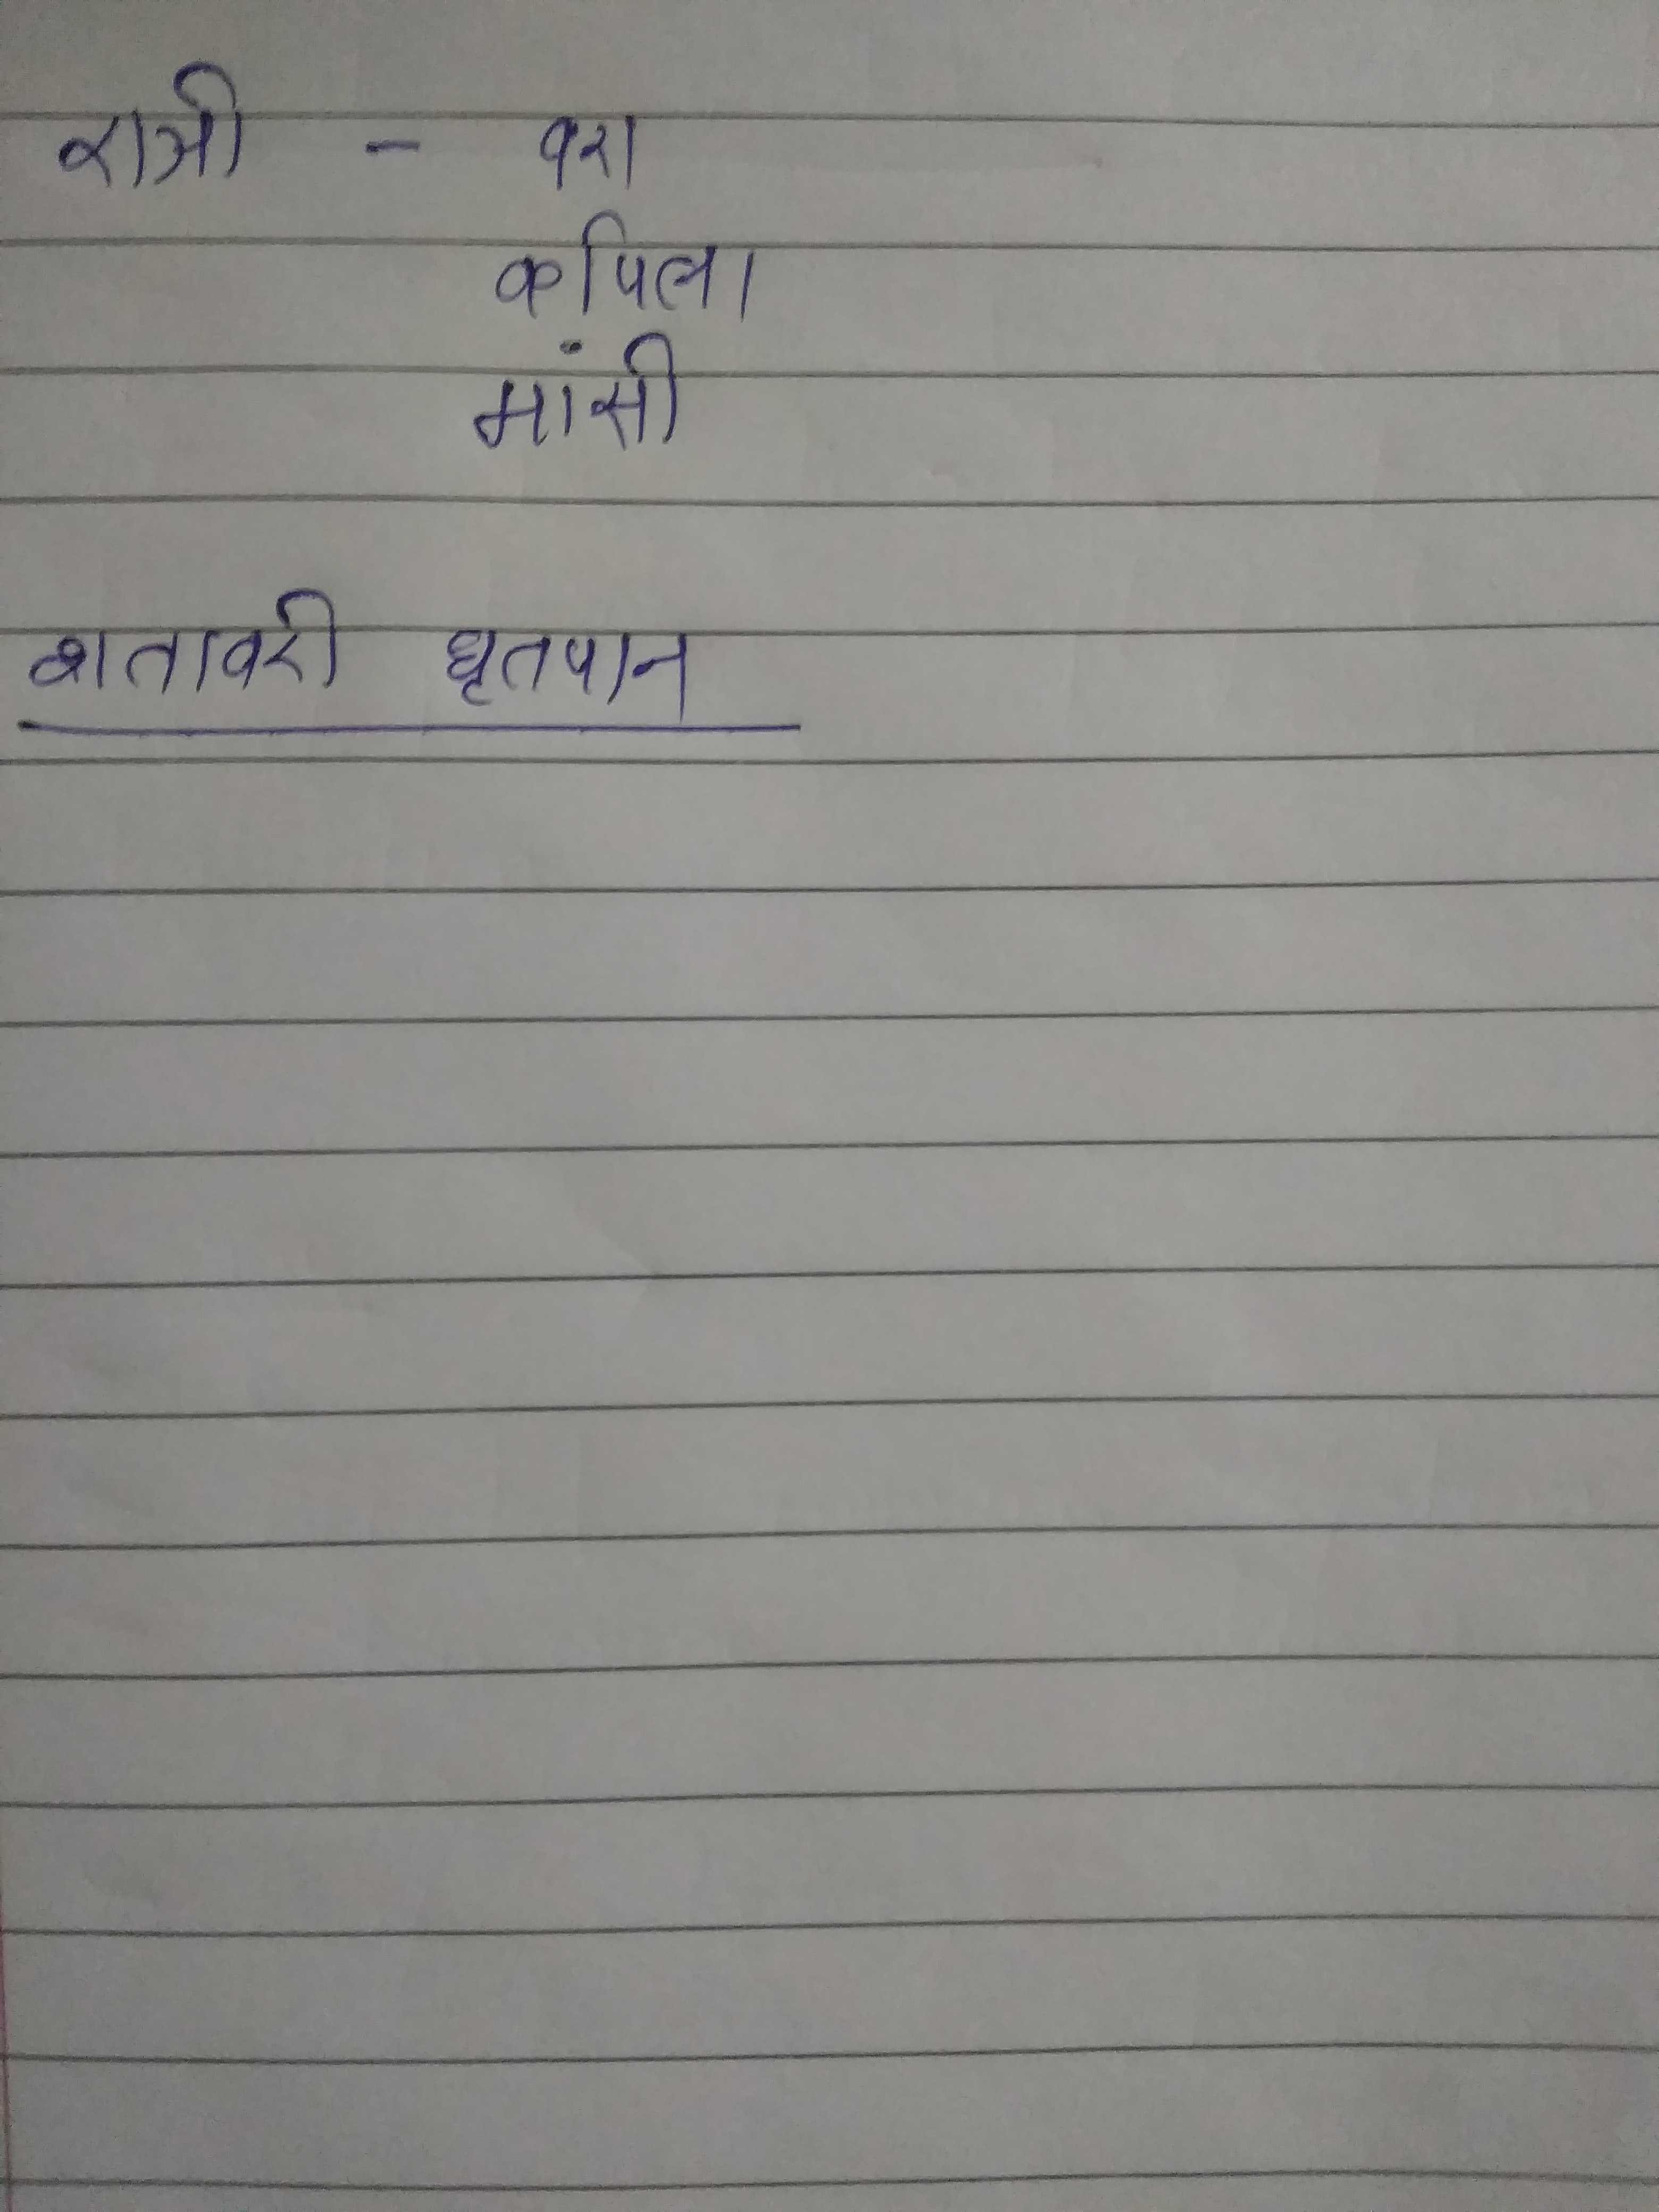 रात्री - वरा
कपिला
मांसी
शतावरी घृतपान